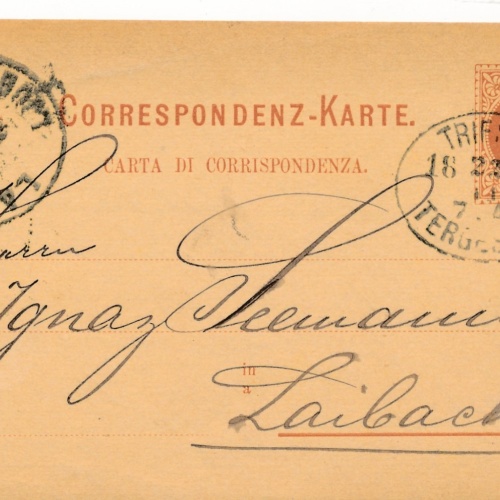 CORRESPONDENZ-KARTE.
CARTA DI CORRISPONDENZA.
TRIE
18 23
7
TERGES
Ignaz Seemann
in
a
Laibach